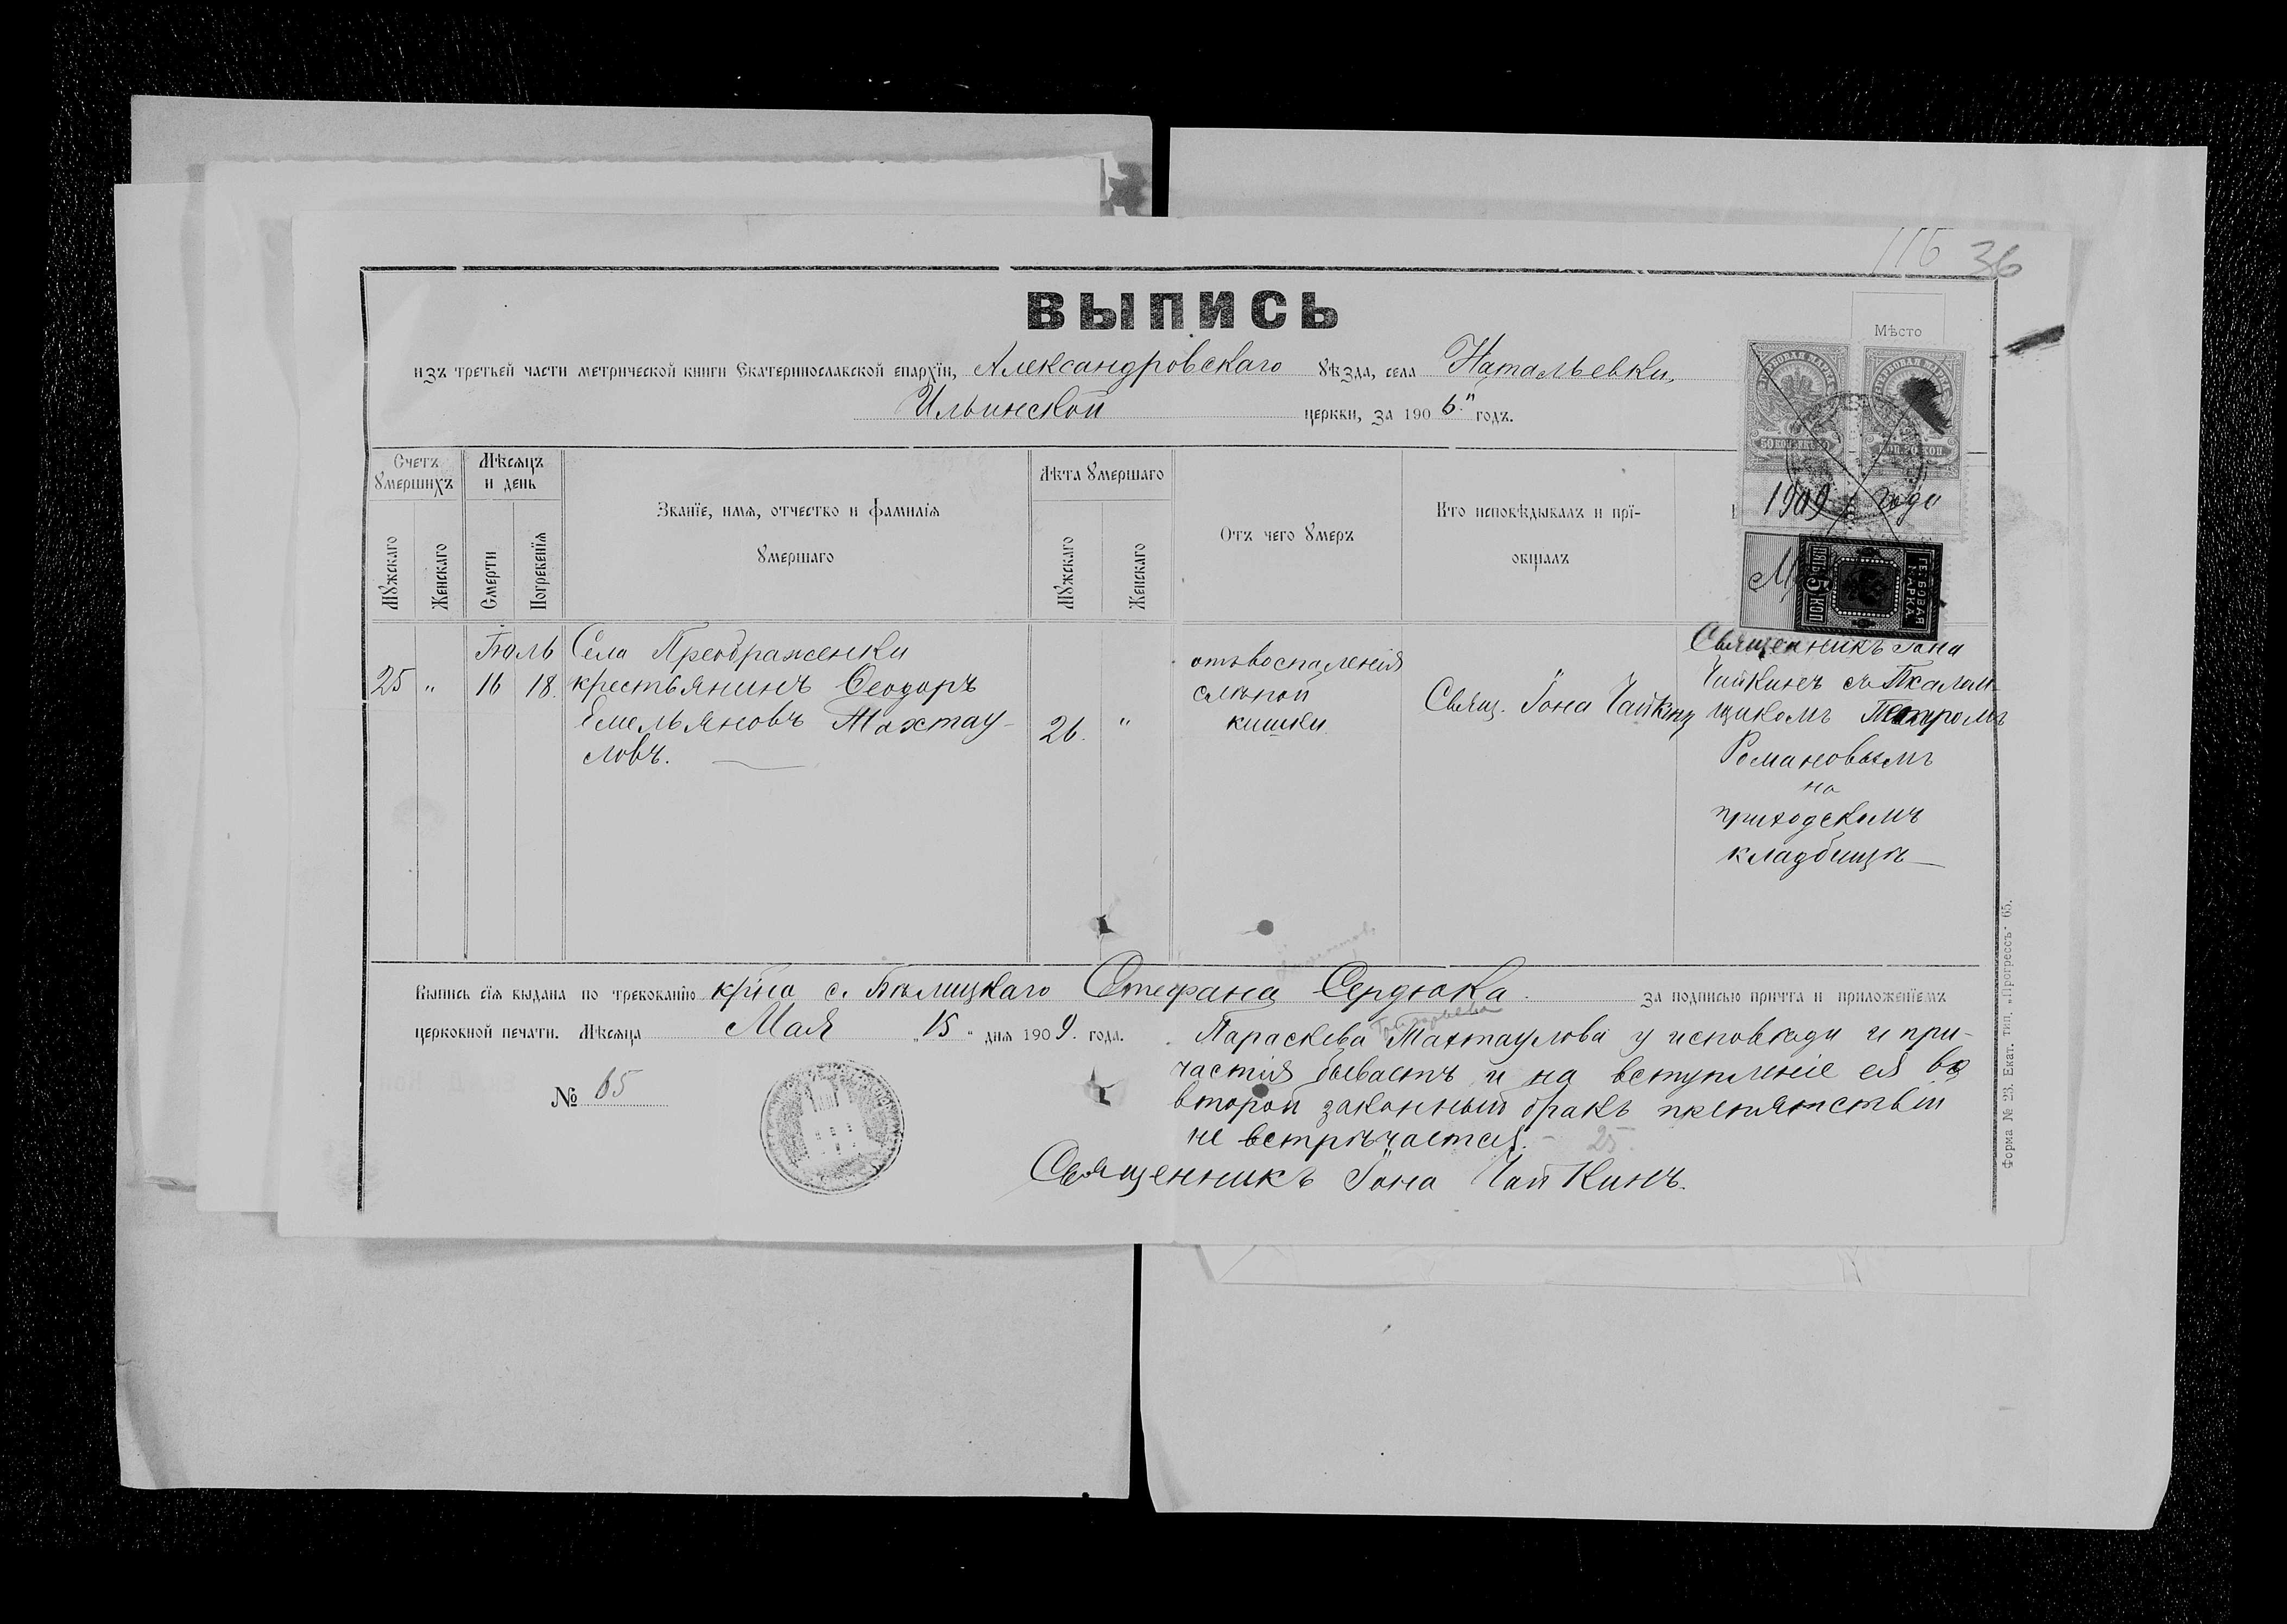 116 36
ВЫПИСЬ
Мѣсто
изъ третьей части метрической книги Екатеринославской епархїи, Александровскаго уѣзда, села Натальевки,
Ильинской церкви, за 1906" годъ.
50 КОП.
1909 года
МАРКА
5 КОП
Счетъ умершихъ
Мѣсяцъ и день
Званїе, имя, отчество и фамилїя
умершаго
Лѣта умершаго
Отъ чего умеръ
Кто исповѣдывалъ и прї-
общалъ
Мужскаго
Женскаго
Смерти
Погребенїя
Мужскаго
Женскаго
Іюль
25 " 16 18.
Села Преображенки
крестьянинъ Ѳеодоръ
Емельяновъ Тахтау-
ловъ.
26. "
отъ воспаленія
слѣпой
кишки
Свящ. Іона Чайкинъ
Священникъ Іона
Чайкинъ съ Псалом-
щикомъ Петромъ
Романовымъ
на
приходскомъ
кладбищѣ
Выпись сїя выдана по требованїю кр͠на с. Бѣлицкаго Стефана Сердюка. за подписью причта и приложенїемъ
церковной печати. Мѣсяца Мая "15" дня 1909. года.
Параскева Тахтаулова у исповѣди и при-
частія бываетъ и на вступленіе ея во
второй законный бракъ препятствій
не встрѣчается.
25
№ 65
Священникъ Іона Чайкинъ.
Форма № 23. Екат. тип. „Прогрессъ" 65.